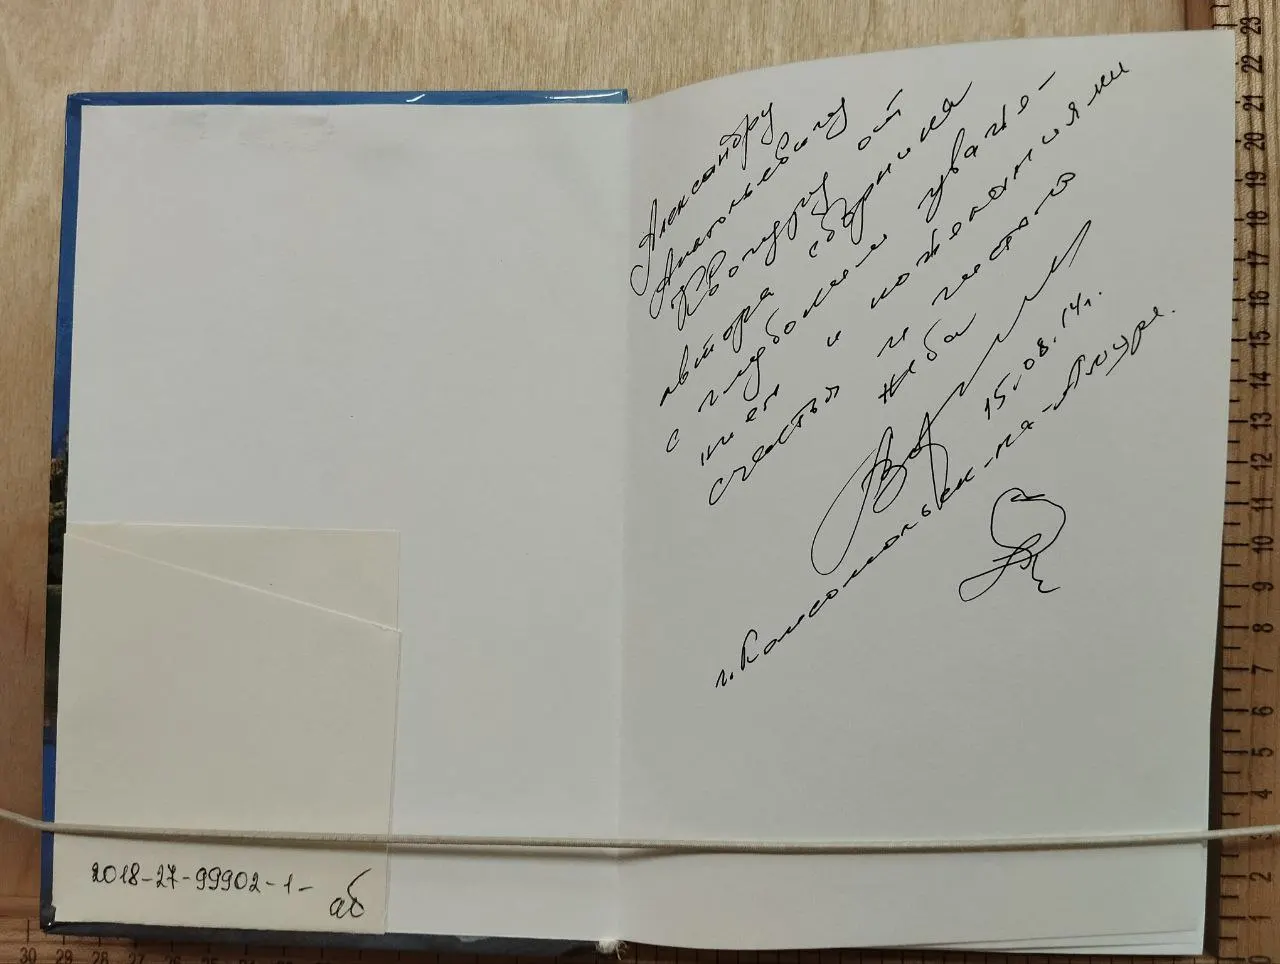 Александру
Анатольевичу
от
автора сборника
с глубоким уваже-
нием и пожеланиями
счастья и чистого
неба
15.08.14г.
г. Комсомольск-на-Амуре.
2018-27-99902-1-
аб
23
22
21
20
19
18
17
16
15
14
13
12
11
10
9
8
7
6
5
4
3
2
1
0
30 29 28 27 26 25 24 23 22 21